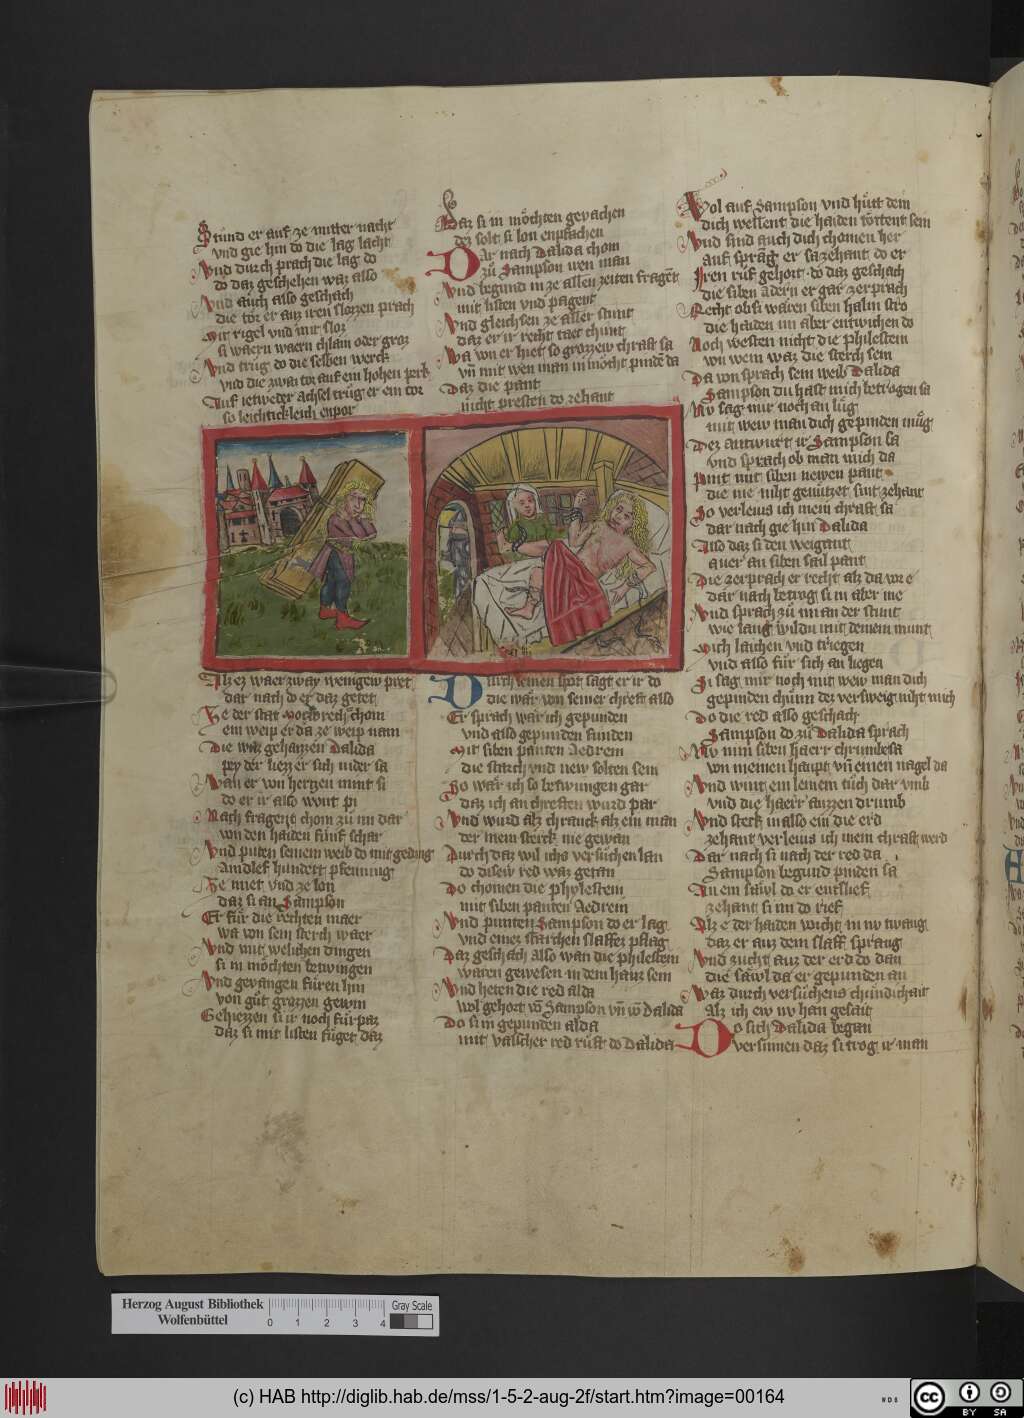 Stund er auf ze mitter nacht
vnd gie hin do die lag lacht
Vnd durch prach die lag do
do daz geschehen waz also
Vnd auch also geschach
die tor er auz iren slozzen prach
Mit rigel vnd mit sloz
si waern waern chlain oder groz
Vnd trug do die selben werck
vnd die zwai tor auf ein hohen perk
Auf ietweder achsel trug er ein tor
so leichticleich enpor
Alz ez waer zway weingew pret
dar nach do er daz getet
Ze der stat Norbrech chom
ein weip er da ze weip nam
Die waz gehaizzen Dalida
pey der liezz er sich nider sa
Wan er von hertzen mint si
do er ir also wont pi
Nach fragent chom zu im dar
von den haiden funf schar
Vnd puten seinem weib do mit geding
Aindlef hundert pfenning
Ze miet vnd ze lon
daz si an Sampson
Er fur die rechten maer
wa von sein sterch waer
Vnd mit welichen dingen
si in möchten betwingen
Vnd gevangen füren hin
von gut grozzen gewin
Gehiezzen si ir noch fürpaz
daz si mit listen füget daz
Daz si in möchten geuachen
dez solt si lon enpfachen
Dar nach Dalida chom
zu Sampson iren man
Vnd begund in ze allen zeiten fragent
mit listen vnd pagent
Vnd gleichsen ze aller stunt
daz er ir recht taet chunt
Wa von er hiet so grozzew chraft sa
vn mit wen man in möcht pinden da
Daz die pant
nicht presten do zehant
Durch seinen spot sagt er ir do
die war von seiner chreft also
Er sprach war ich gepunden
vnd also gepunden funden
Mit siben panten Aedrein
die starch vnd new solten sein
So war ich so betwungen gar
daz ich an chreften wurd par
Vnd wurd alz chranck alz ein man
der mein sterck nie gewan
Durch daz wil ichs versuchen lan
do disew red waz getan
Do chomen die phylestein
mit siben panten Aedrein
Vnd punten Sampson do er lag
vnd einez starchen slaffez pflag
Daz geschach also wan die philestein
waren gewesen in dem hauz sein
Vnd heten die red alda
wol gehort von Sampson vn von Dalida
Do si in gepunden alda
mit valscher red ruft do Dalida
Wol auf Sampson vnd hutt dein
dich wellent die haiden törtent sein
Vnd sind auch dich chomen her
auf sprang er sa zehant do er
Iren ruf gehort do daz geschach
die siben adern er gar zerprach
Recht ob si waren siben halm stro
die haiden im aber entwichen do
Noch westen nicht die philestein
von wem waz die sterch sein
Da von sprach sein weib Dalida
Sampson du hast mich betrogen sa
Nv sag mir noch an lüg
mit wew man dich gepinden müg
Dez antwurt ir Sampson sa
vnd sprach ob man mich da
Pint mit siben newen pant
die nie niht genützet sint zehant
So verleus ich mein chraft sa
dar nach gie hin Dalida
Also daz si den weigant
auer an siben sail pant
Die zerprach er recht alz da vor e
dar nach betrog si in aber me
Vnd sprach zu im an der stunt
wie lang wildu mit deinem munt
Mich laichen vnd triegen
vnd also für sich an liegen
Nv sag mir noch mit wew man dich
gepinden chünn dez versweig niht mich
Do die red also geschach
Sampson do zu Dalida sprach
Nv nim siben haerr chrumbesa
von meinem haupt vn einen nagel da
Vnd wint ein leinein tuch dar vmb
vnd die haerr auzzen drumb
Vnd steck in also ein die erd
zehant verleus ich mein chraft werd
Dar nach si nach der red da
Sampson begund pinden sa
An ein sawl do er entslief
zehant si im do rief
Alz e der haiden wicht in nv twang
daz er auz dem slaff sprang
Vnd zucht auz der erd do dan
die sawl da er gepunden an
Waz durch versuchens chundichait
Alz ich ew nv han gesait
Do sich Dalida began
versinnen daz si trog ir man
Herzog August Bibliothek
Wolfenbüttel
0 1 2 3 4
Gray Scale
(c) HAB http://diglib.hab.de/mss/1-5-2-aug-2f/start.htm?image=00164
WDB
cc BY SA